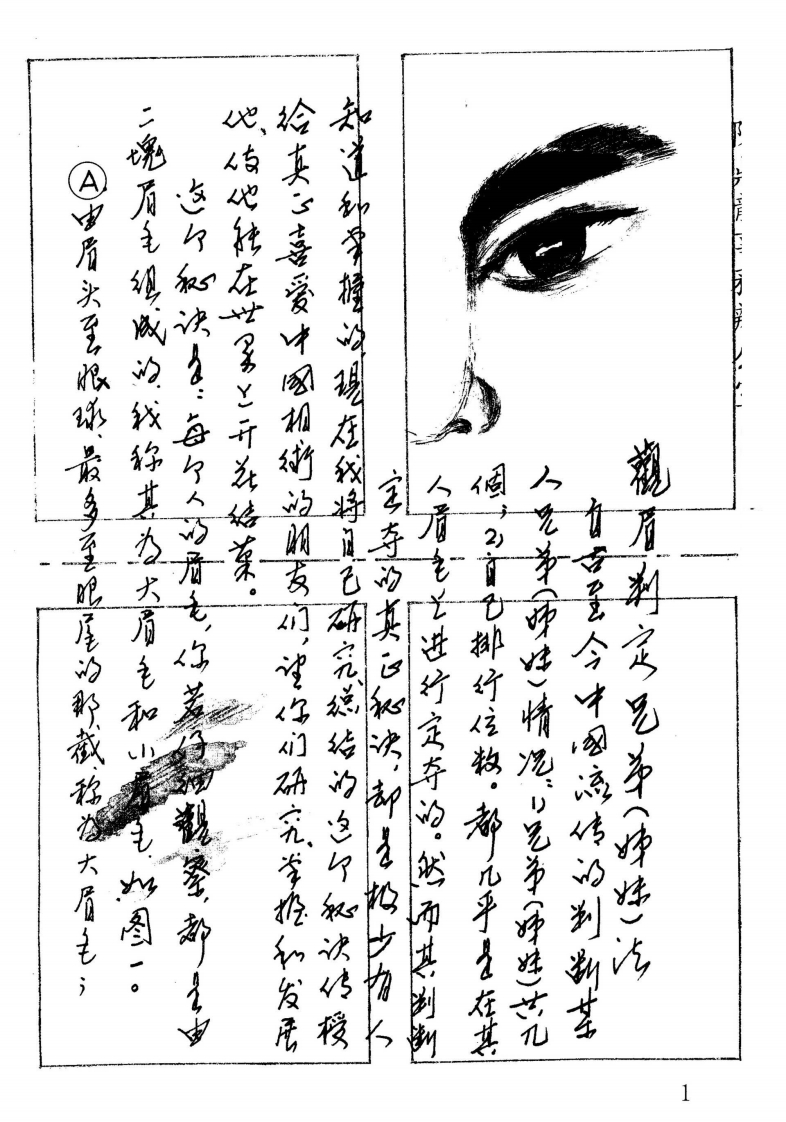 觀眉判定兄弟(姊妹)法
自古至今中國流传的判断某
人兄弟(姊妹)情况:1)兄弟(姊妹)共几
個;2)自己排行位数。都几乎是在其
人眉毛上进行定夺的。然而其判断
定夺的真正秘诀,却是极少有人
知道和掌握的,現在我將自己研究总结的这个秘诀传授
给真正喜愛中國相術的朋友们,望你们研究、掌握和发展
他、使他能在世界上开花结菓。
这个秘诀是:每个人的眉毛,你若仔细觀察,都是由
二塊眉毛组成的,我称其为大眉毛和小眉毛,如图一。
Ⓐ由眉头至眼球、最多至眼尾的那截,称为大眉毛;
1